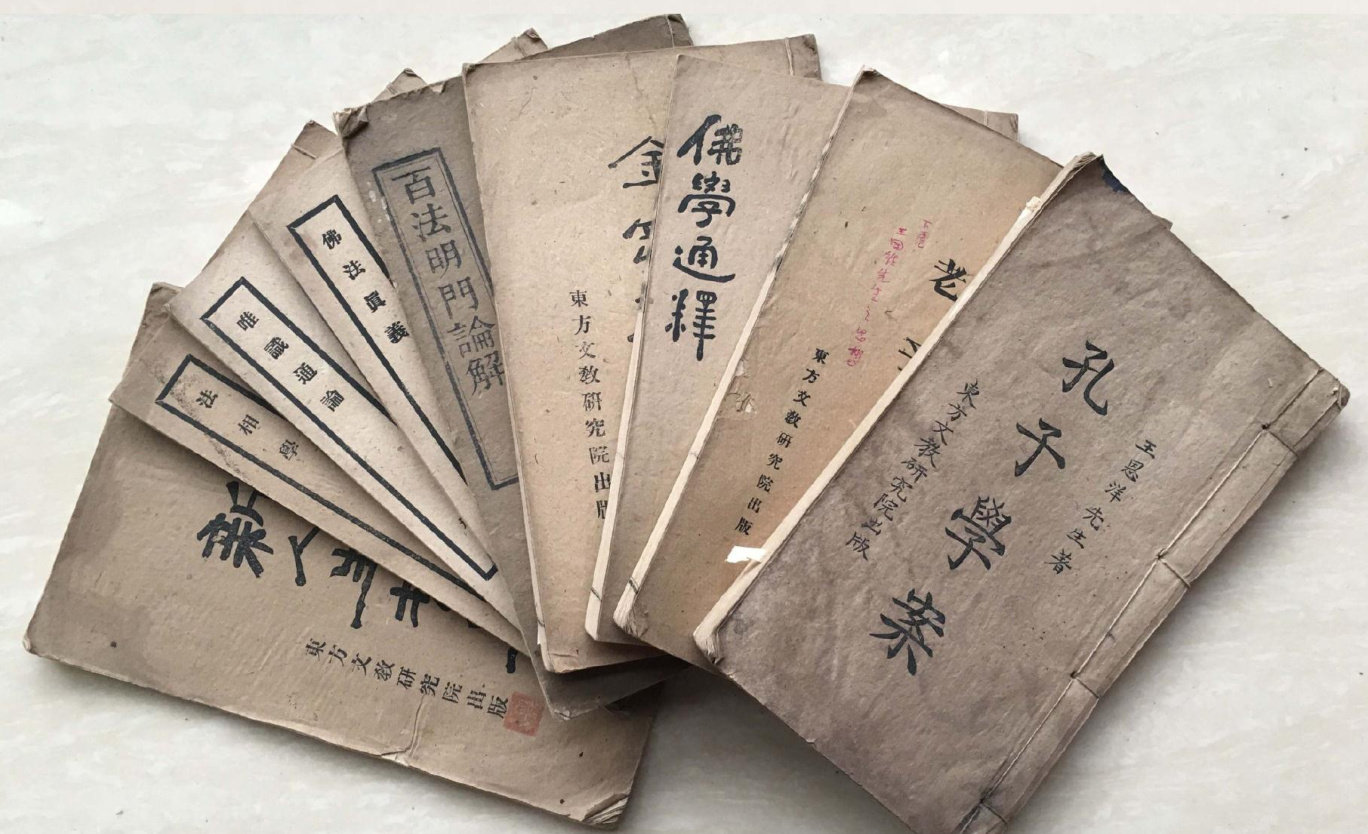 新人
東方文教研究院出版
法相學
唯識通論
佛法眞義
百法明門論解
金
東方文教研究院出版
佛學通釋
老
東方文教研究院出版
王恩洋先生著
孔子學案
東方文教研究院出版